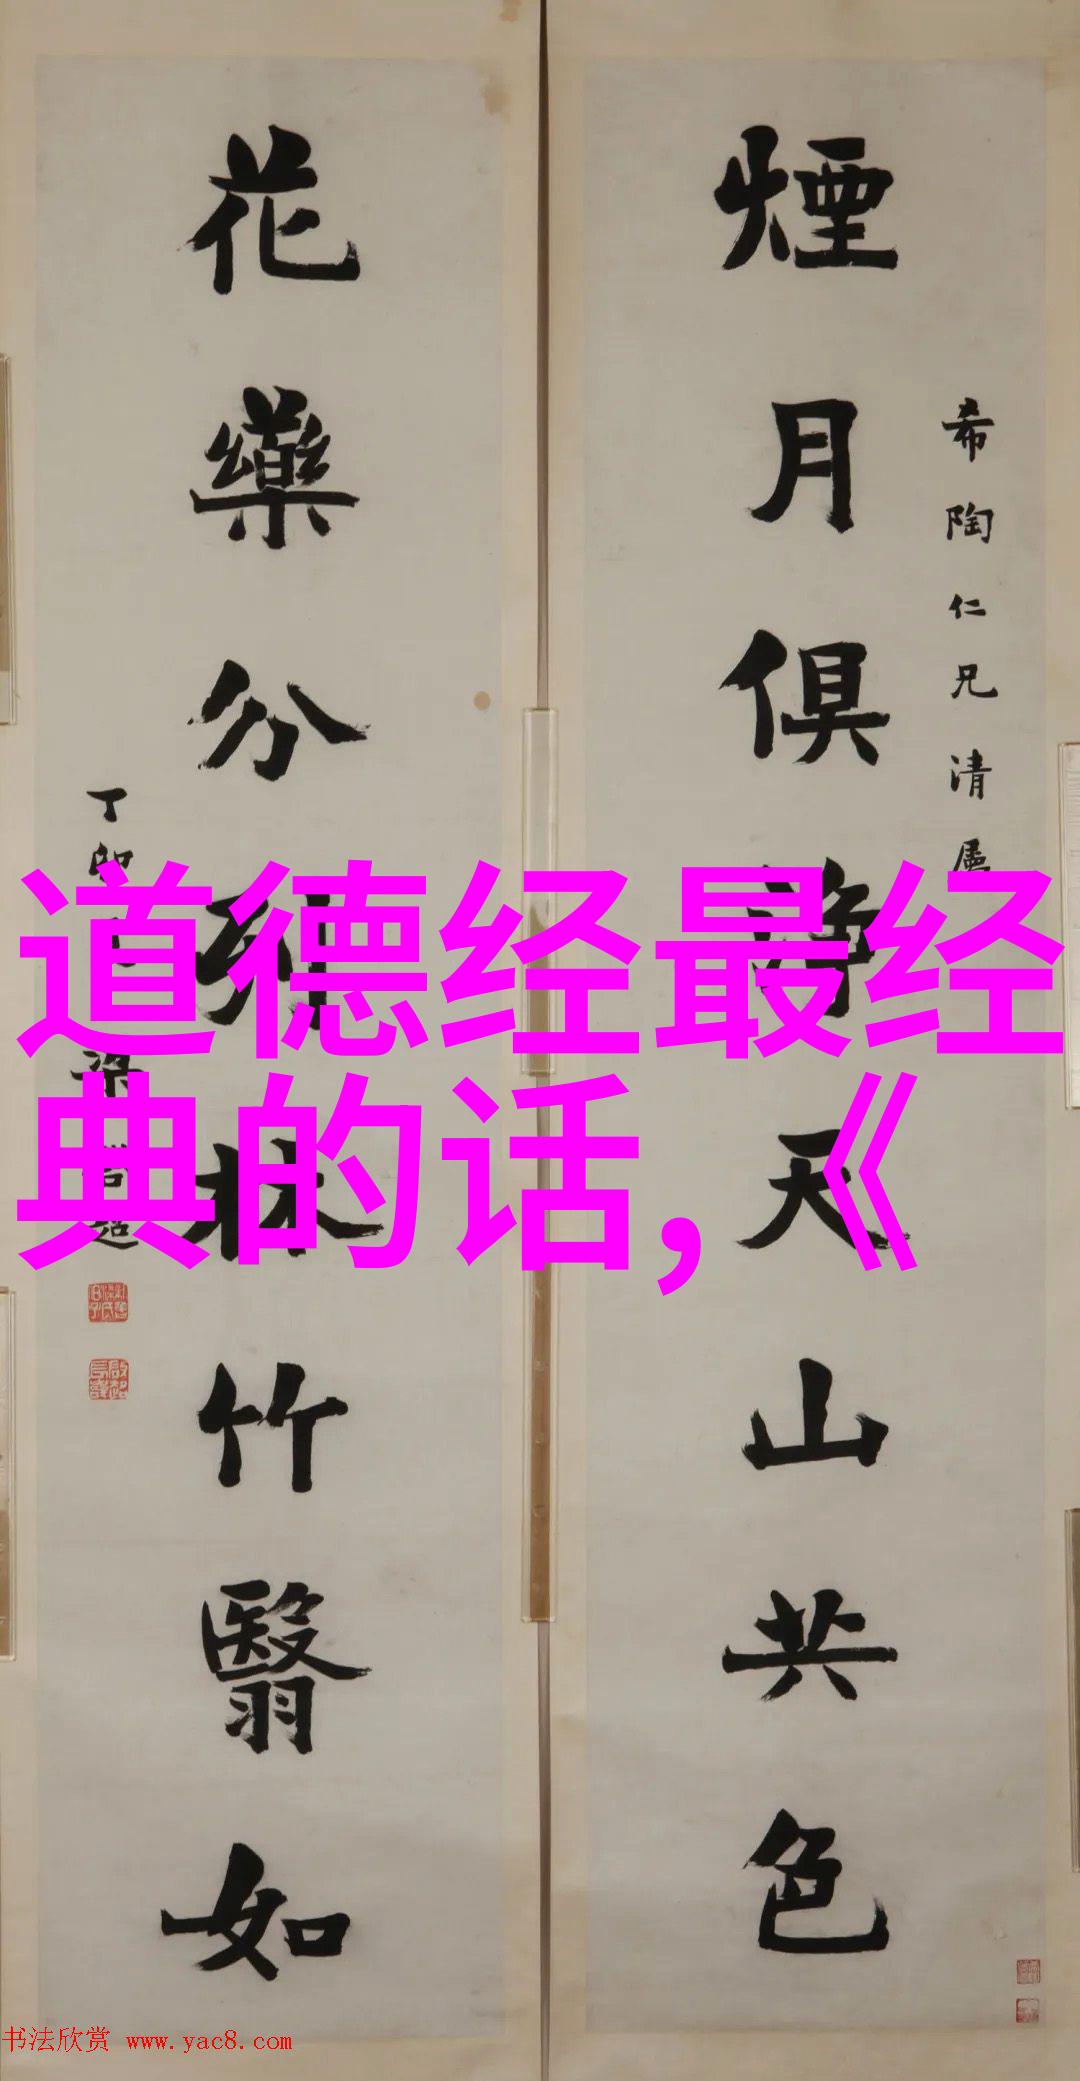 煙月俱淨天山共色
希陶仁兄清屬
花藥分列林竹翳如
丁卯
梁啓超
道德经最经
典的话,《
书法欣赏 www.yac8.com